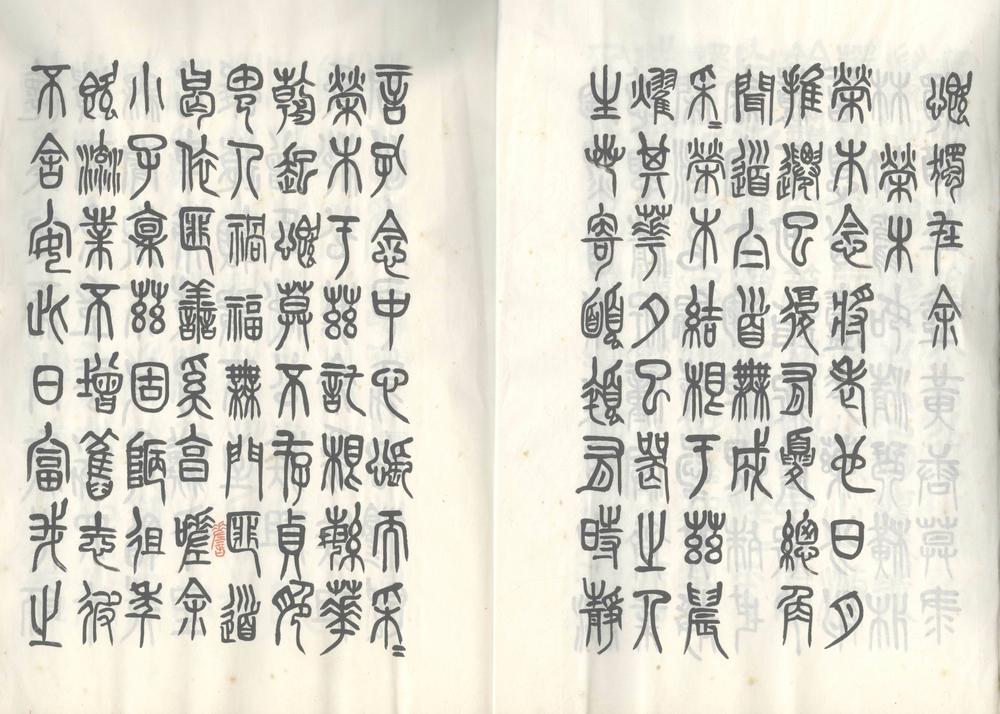 慨獨在余
榮木
榮木念將老也日月
推遷已復有夏總角
聞道白首無成
采〻榮木結根于茲晨
耀其華夕已喪之人
生若寄顦顇有時靜
言孔念中心悵而采〻
榮木于茲託根繁華
朝起慨莫不存貞脆
由人禍福無門匪道
曷依匪善奚敦嗟余
小子稟茲固陋徂年
既流業不增舊志彼
不舍安此日富我之